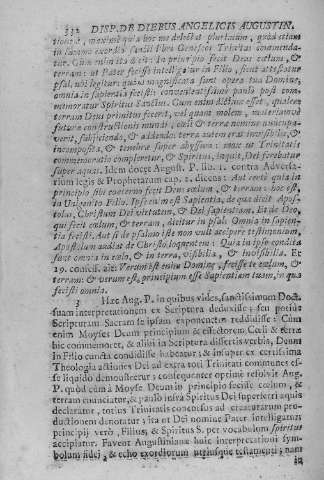 332 DISP. DE DIEBUS ANGELICIS AUGUSTIN.
tionet, maximè quia hoc me delectat plurimum, quòd etiam
in summo exordio sancti libri Geneseos Trinitas commenda-
tur. Cum enim ita dicit: In principio fecit Deus cœlum, &
terram: ut Pater fecisse intelligatur in Filio, sicut attestatur
psal. ubi legitur: quàm magnificata sunt opera tua Domine,
omnia in sapientia fecisti: convenientissimè paulò post com-
memoratur Spiritus Sanctus. Cum enim dictum esset, qualem
terram Deus primitus fecerit, vel quam molem, materiamve
futuræ constructionis mundi, cœli & terræ nomine nuncupa-
verit, subjiciendo, & addendo: terra autem erat invisibilis, &
incomposita, & tenebræ super abyssum: mox ut Trinitatis
commemoratio compleretur, & Spiritus, inquit, Dei ferebatur
super aquas. Idem docet Augusti. P. lib. 1. contra Adversa-
rium legis & Prophetarum cap. 2. dicens: Aut certè quia in
principio sibi coæterno fecit Deus cœlum, & terram: hoc est,
in Unigenito Filio. Ipse enim est Sapientia, de qua dicit Apos-
tolus, Christum Dei virtutem, & Dei sapientiam. Ita de Deo,
qui fecit cœlum, & terram, dicitur in psal. Omnia in sapien-
tia fecisti. Aut si de psalmo iste non vult accipere testimonium,
Apostolum audiat de Christo loquentem: Quia in ipso condita
sunt omnia in cœlo, & in terra, visibilia, & invisibilia. Et
19. confess. ait: Verum est enim Domine, fecisse te cœlum, &
terram: & verum est, principium esse Sapientiam tuam, in qua
fecisti omnia.
3 Hæc Aug. P. in quibus vides, sanctissimum Doct.
suam interpretationem ex Scriptura deduxisse; seu potius
Scripturam Sacram se ipsam exponentem reddidisse: Cùm
enim Moyses Deum principium & effectorem Cœli & terræ
hic commemoret, & alibi in Scriptura disertis verbis, Deum
in Filio cuncta condidisse habeatur; & insuper ex certissima
Theologia actiones Dei ad extra toti Trinitati communes es-
se liquidò demonstretur; consequenter optimè refolvit Aug
P. quòd cùm à Moyse Deum in principio fecisse cœlum, &
terram enunciatur, & paulò infra Spiritus Dei superferri aquis
declaratur, totius Trinitatis concursus ad creaturarum pro-
ductionem denotatur; ita ut Dei nomine Pater intelligatur
principij verò, Filius; & Spiritus S. per vocabulum spiritus
accipiatur. Favent Augustinianæ huic interpretationi sym-
bolum fidei, & echo exordiorum utriusque testamenti; nam